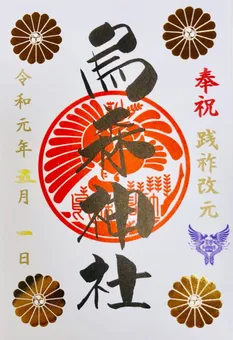 奉祝 践祚改元
烏森神社
令和元年五月一日